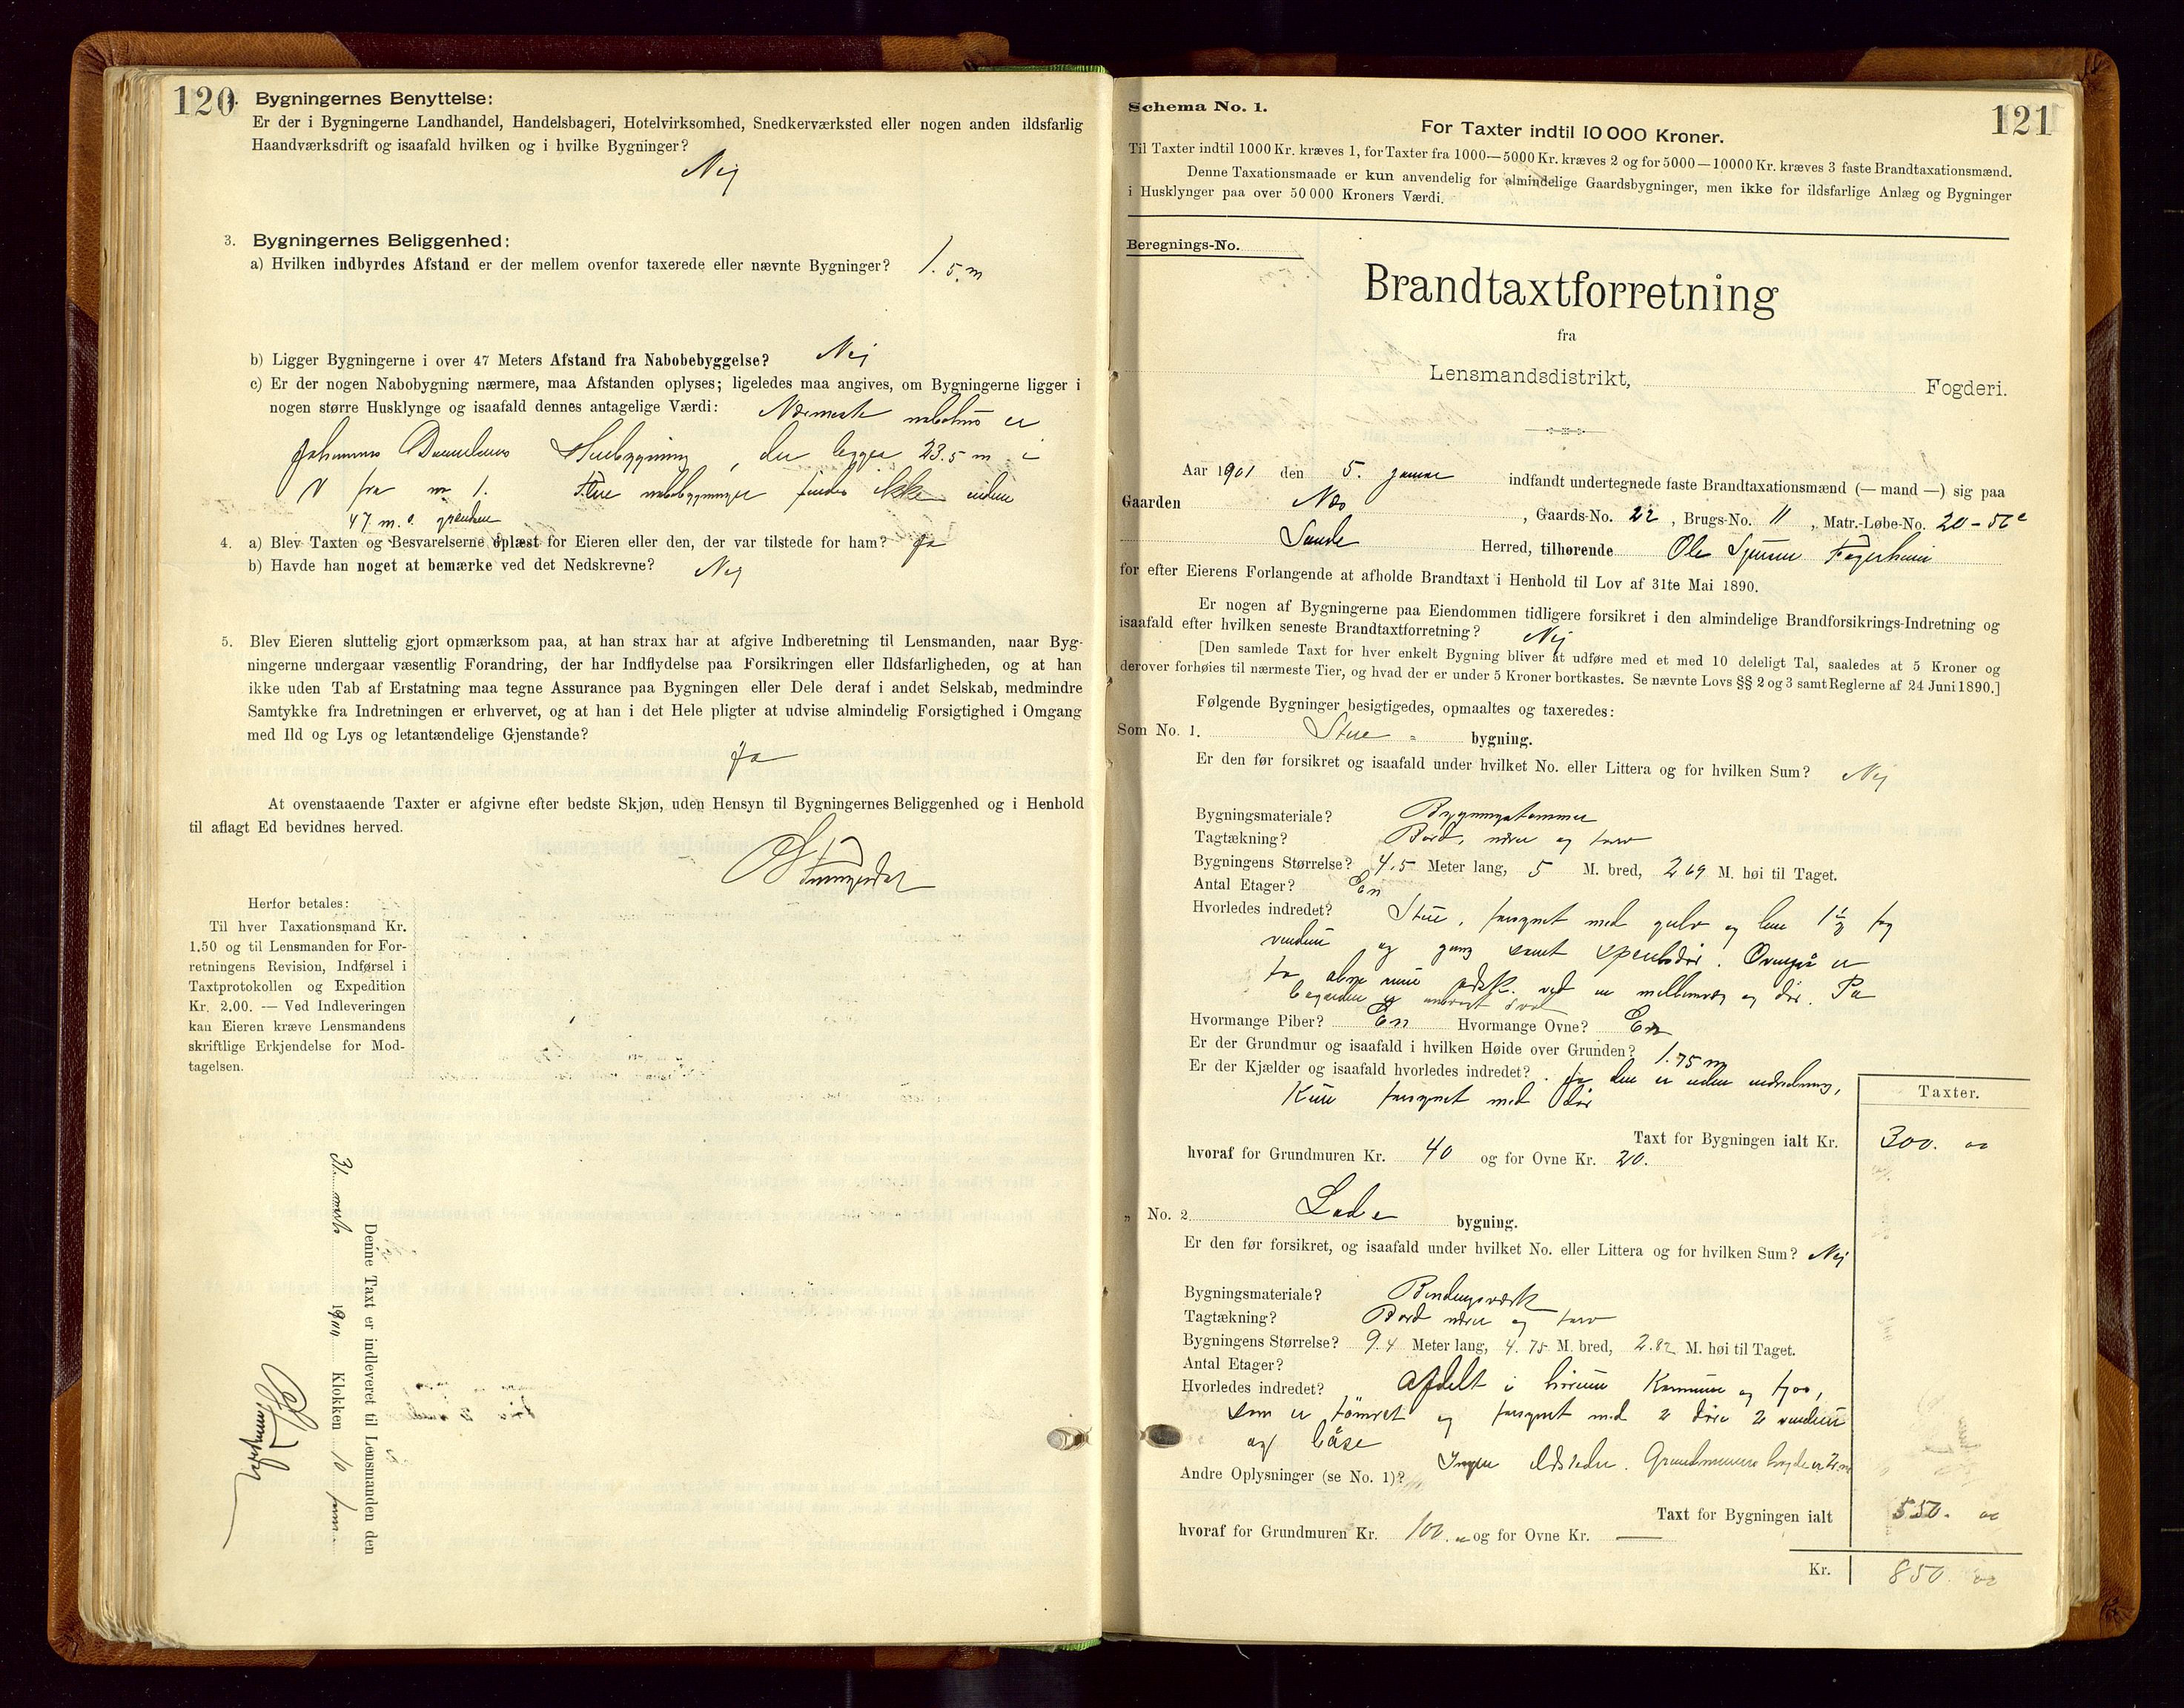 120
Bygningernes Benyttelse:
Er der i Bygningerne Landhandel, Handelsbageri, Hotelvirksomhed, Snedkerværksted eller nogen anden ildsfarlig
Haandværksdrift og isaafald hvilken og i hvilke Bygninger?
Nej
3. Bygningernes Beliggenhed:
a) Hvilken indbyrdes Afstand er der mellem ovenfor taxerede eller nævnte Bygninger? 1.5 m
b) Ligger Bygningerne i over 47 Meters Afstand fra Nabobebyggelse? Nei
c) Er der nogen Nabobygning nærmere, maa Afstanden oplyses; ligeledes maa angives, om Bygningerne ligger i
nogen større Husklynge og isaafald dennes antagelige Værdi: Nærmeste nabohus er
Johannes Stuebygning, der ligger 23.5 m i
N fra no 1. Flere nabobygninger findes ikke inden
47 m.s grændse
4. a) Blev Taxten og Besvarelserne oplæst for Eieren eller den, der var tilstede for ham? Ja
b) Havde han noget at bemærke ved det Nedskrevne? Nej
5. Blev Eieren sluttelig gjort opmærksom paa, at han strax har at afgive Indberetning til Lensmanden, naar Byg-
ningerne undergaar væsentlig Forandring, der har Indflydelse paa Forsikringen eller Ildsfarligheden, og at han
ikke uden Tab af Erstatning maa tegne Assurance paa Bygningen eller Dele deraf i andet Selskab, medmindre
Samtykke fra Indretningen er erhvervet, og at han i det Hele pligter at udvise almindelig Forsigtighed i Omgang
med Ild og Lys og letantændelige Gjenstande?
Ja
At ovenstaaende Taxter er afgivne efter bedste Skjøn, uden Hensyn til Bygningernes Beliggenhed og i Henhold
til aflagt Ed bevidnes herved.
Herfor betales:
Til hver Taxationsmand Kr.
1.50 og til Lensmanden for For-
retningens Revision, Indførsel i
Taxtprotokollen og Expedition
Kr. 2.00. — Ved Indleveringen
kan Eieren kræve Lensmandens
skriftlige Erkjendelse for Mod-
tagelsen.
Denne Taxt er indleveret til Lensmanden den
31 marts 1901 Klokken 10 form.
121
Schema No. 1.
For Taxter indtil 10 000 Kroner.
Til Taxter indtil 1000 Kr. kræves 1, for Taxter fra 1000—5000 Kr. kræves 2 og for 5000—10000 Kr. kræves 3 faste Brandtaxationsmænd.
Denne Taxationsmaade er kun anvendelig for almindelige Gaardsbygninger, men ikke for ildsfarlige Anlæg og Bygninger
i Husklynger paa over 50 000 Kroners Værdi.
Beregnings-No.
Brandtaxtforretning
fra
Lensmandsdistrikt, Fogderi.
Aar 1901 den 5. januar indfandt undertegnede faste Brandtaxationsmænd (— mand —) sig paa
Gaarden Næs, Gaards-No. 22, Brugs-No. 11, Matr.-Løbe-No. 20-56c
Sande Herred, tilhørende Ole Fagerheim
for efter Eierens Forlangende at afholde Brandtaxt i Henhold til Lov af 31te Mai 1890.
Er nogen af Bygningerne paa Eiendommen tidligere forsikret i den almindelige Brandforsikrings-Indretning og
isaafald efter hvilken seneste Brandtaxtforretning? Nej
[Den samlede Taxt for hver enkelt Bygning bliver at udføre med et med 10 deleligt Tal, saaledes at 5 Kroner og
derover forhøies til nærmeste Tier, og hvad der er under 5 Kroner bortkastes. Se nævnte Lovs §§ 2 og 3 samt Reglerne af 24 Juni 1890.]
Følgende Bygninger besigtigedes, opmaaltes og taxeredes:
Som No. 1. Stue - bygning.
Er den før forsikret og isaafald under hvilket No. eller Littera og for hvilken Sum? Nej
Bygningsmateriale? Bygningstømmer
Tagtækning? Bord, næver og torv
Bygningens Størrelse? 4.5 Meter lang, 5 M. bred, 2.69 M. høi til Taget.
Antal Etager? En
Hvorledes indredet? Stue, forsynet med gulv og 1½ fag
vinduer og gang samt spisebod. Ovenpaa er
to adsk. ved en mellemvæg og dør. Paa
Hvormange Piber? En Hvormange Ovne? En
Er der Grundmur og isaafald i hvilken Høide over Grunden? 1.75 m
Er der Kjælder og isaafald hvorledes indredet? Ja den er uden indredning,
Kun forsynet med dør
Taxter.
Taxt for Bygningen ialt Kr. 300. 00
hvoraf for Grundmuren Kr. 40 og for Ovne Kr. 20.
„ No. 2 Lade bygning.
Er den før forsikret, og isaafald under hvilket No. eller Littera og for hvilken Sum? Nej
Bygningsmateriale? Bindingsværk
Tagtækning? Bord næver og torv
Bygningens Størrelse? 9.4 Meter lang, 4.75 M. bred, 2.82 M. høi til Taget.
Antal Etager?
Hvorledes indredet? Afdelt i og fjøs,
som er tømret og forsynet med 2 døre 2 vinduer
og båse
Andre Oplysninger (se No. 1)? Ingen ildsteder. Grundmurens høyde er 2 m
Taxt for Bygningen ialt 550. 00
hvoraf for Grundmuren Kr. 100. og for Ovne Kr. —
Kr. 850. 00